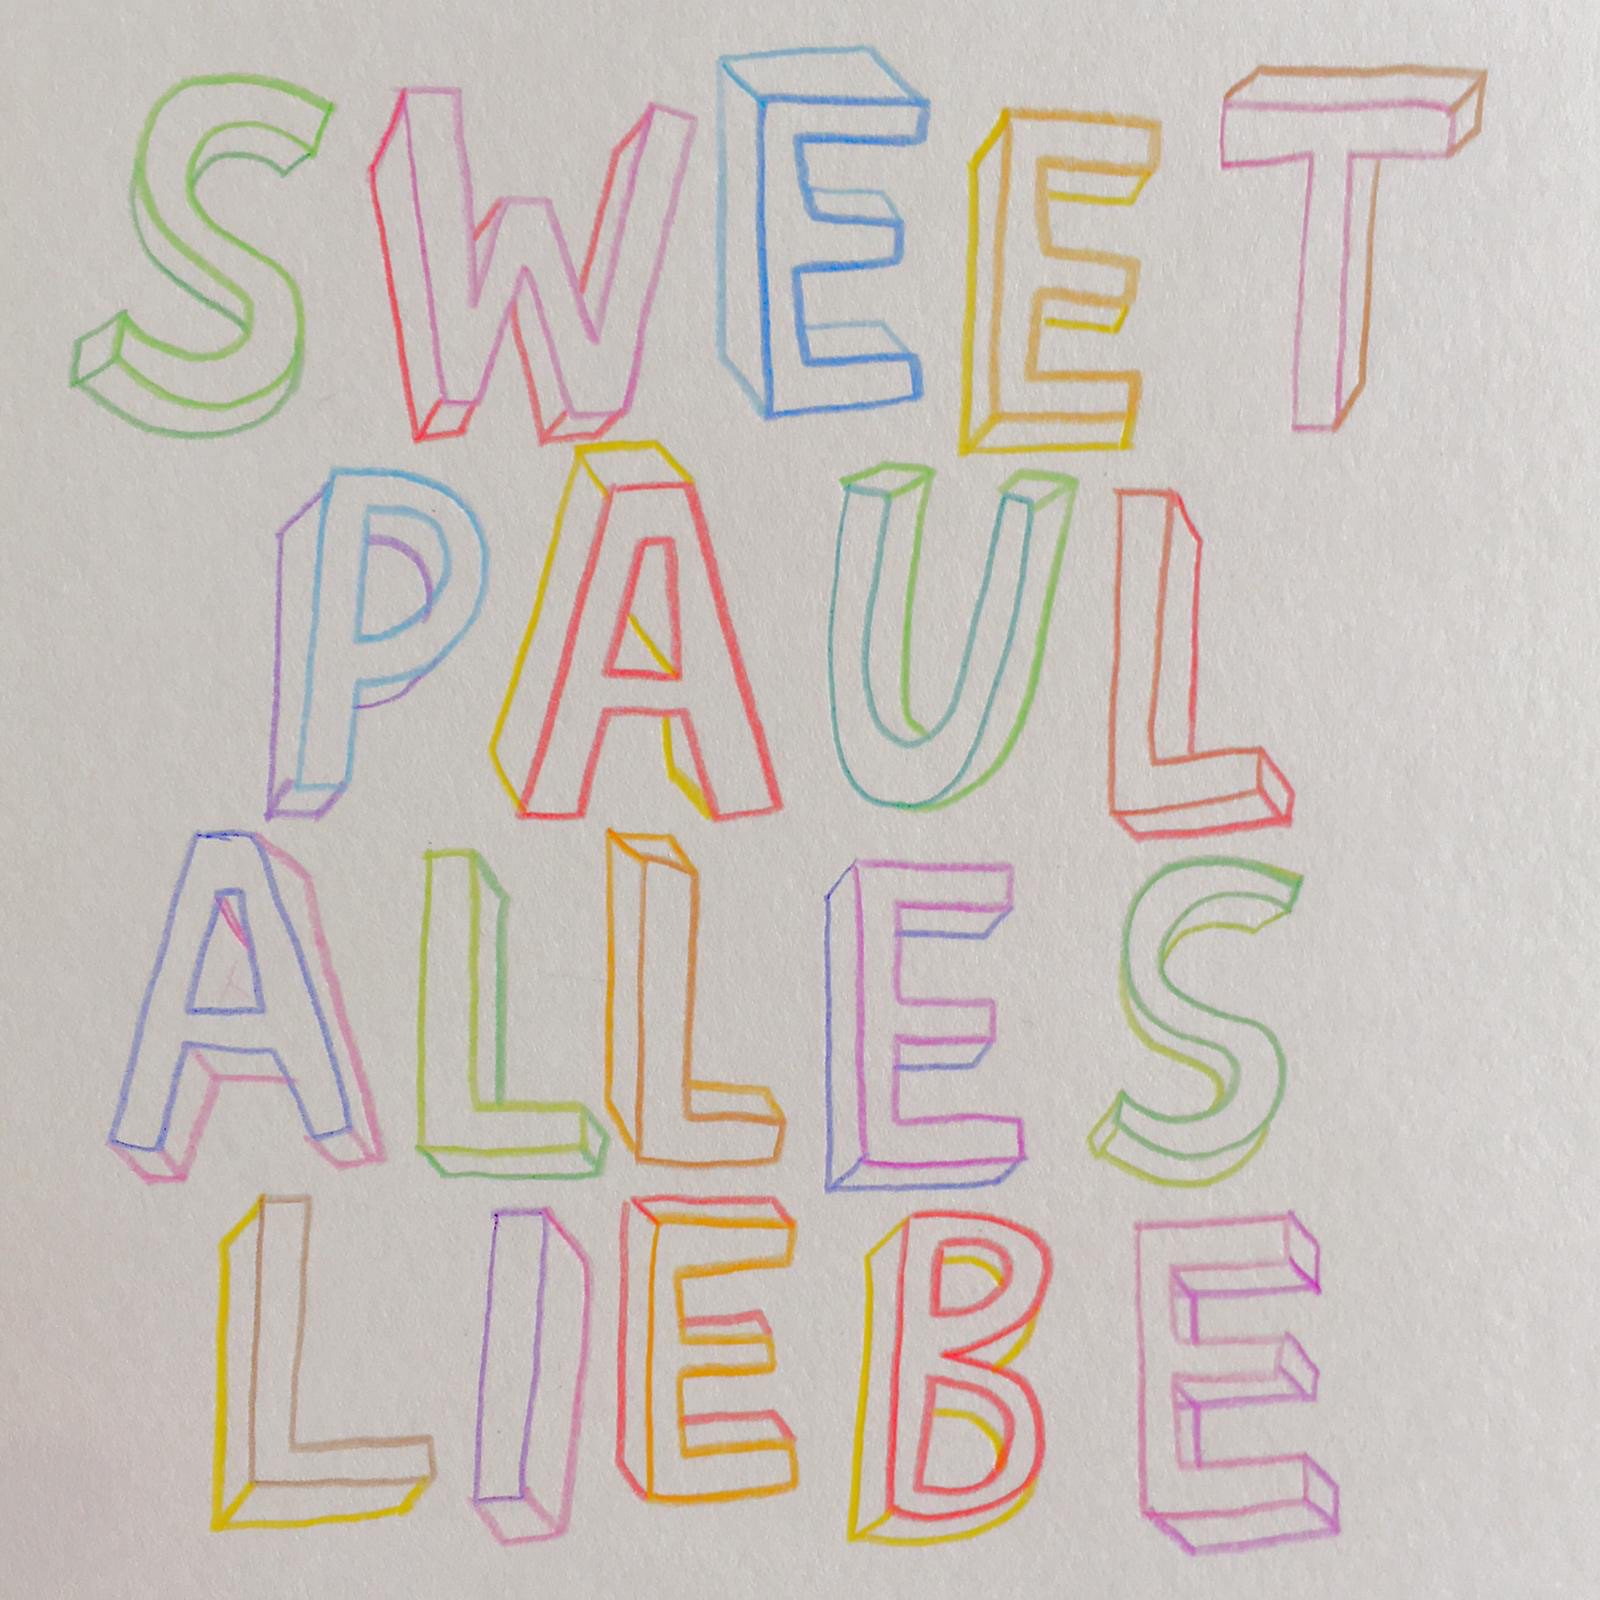 SWEET
PAUL
ALLES
LIEBE